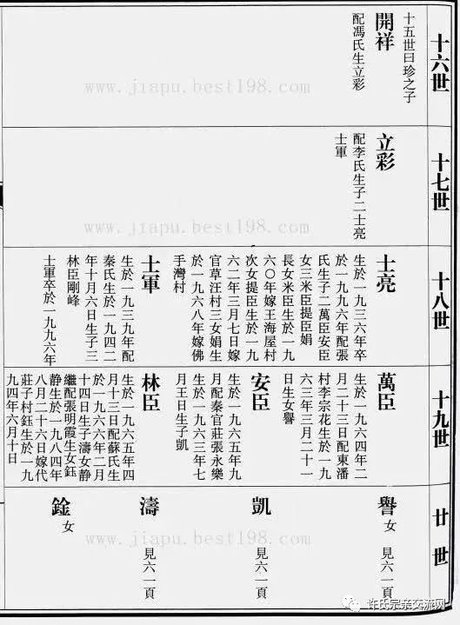 十六世
十五世曰珍之子
開祥
配馮氏生立彩
十七世
立彩
配李氏生子二士亮
士軍
十八世
士亮
生於一九三六年卒
於一九九六年配張
氏生子二萬臣安臣
女三米臣提臣娟
長女米臣生於一九
六〇年嫁王海屋村
次女提臣生於一九
六二年三月七日嫁
官草汪村三女娟生
於一九六八年嫁佛
手灣村
士軍
生於一九三九年配
秦氏生於一九四二
年十月六日生子三
林臣剛峰
士軍卒於一九九六年
十九世
萬臣
生於一九六四年二
月二十三日配東潘
村李宗花生於一九
六三年三月二十一
日生女譽
安臣
生於一九六五年九
月配秦官莊張永樂
生於一九六三年七
月王日生子凱
林臣
生於一九六五年四
月十三日配蘇氏生
於一九六六年二月
十四日生子濤女静
繼配張明霞生女鈺
静生於一九八四年
八月二十六日嫁代
莊子村鈺生於一九
九四年六月十日
廿世
譽 女
凱 見六一頁
濤 見六一頁
銓 女
www.jiapu.best198.com
www.jiapu.best198.com
www.jiapu.best198.com
许氏宗亲交流网